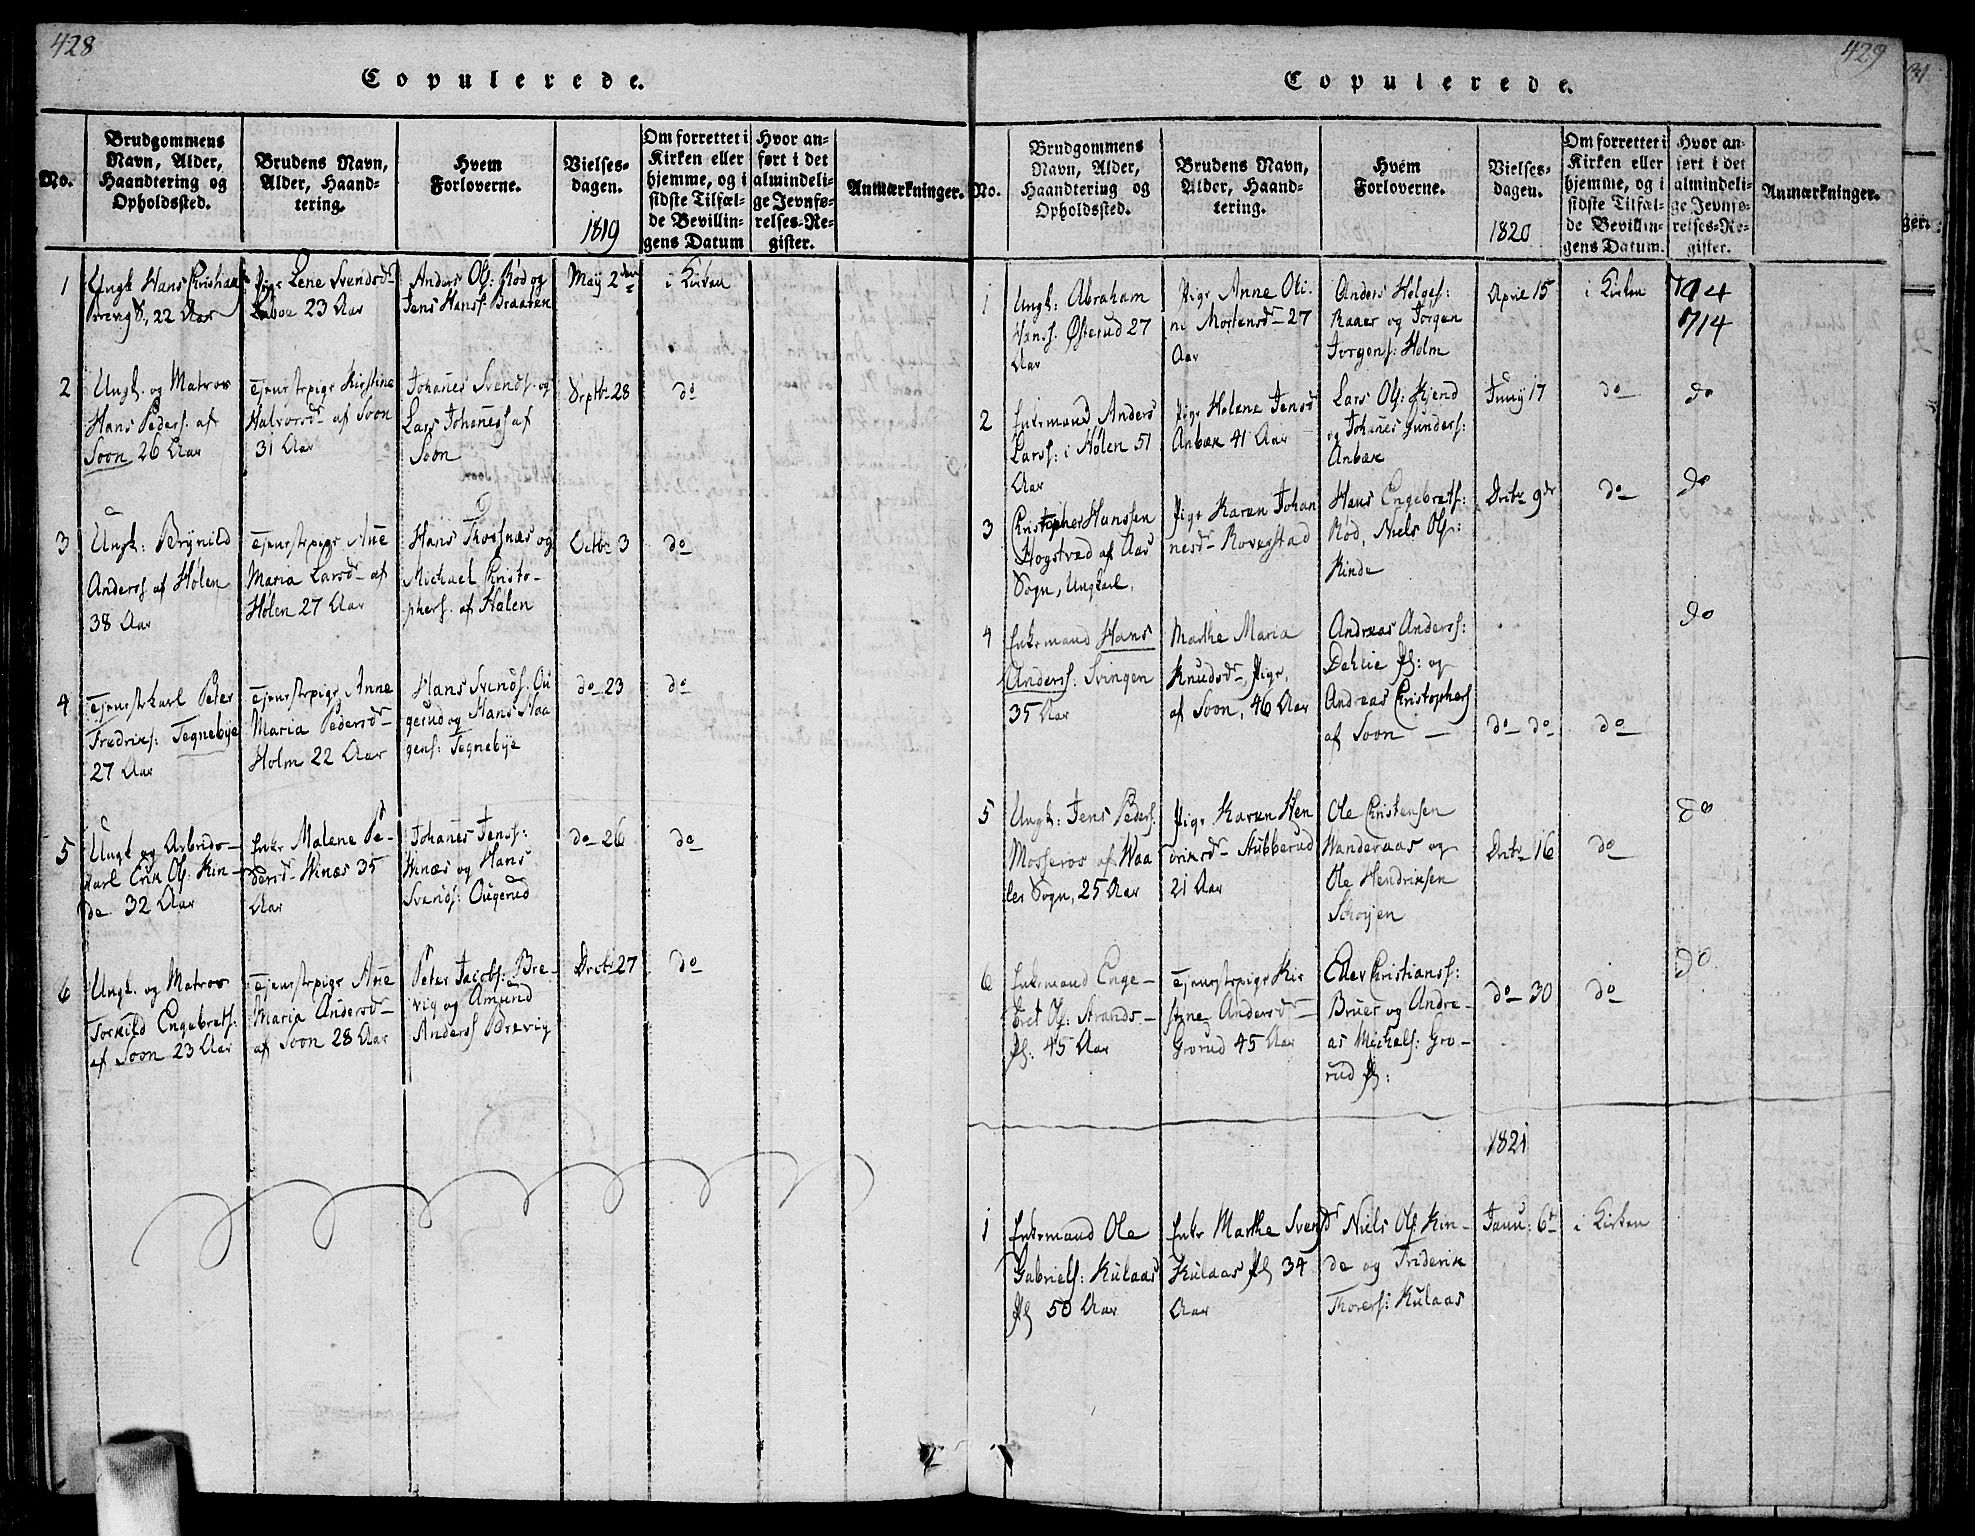 428
Copulerede.
No.
Brudgommens
Navn, Alder,
Haandtering og
Opholdssted.
Brudens Navn,
Alder, Haand-
tering.
Hvem
Forloverne.
Vielses-
dagen.
1819
Om forrettet i
Kirken eller
hjemme, og i
sidste Tilfæl-
de Bevillin-
gens Datum
Hvor an-
ført i det
almindeli-
ge Jevnfø-
relses-Re-
gister.
Anmærkninger.
1
Ungk Hans Christian
22 Aar
Pige Lene Svendsd
Laboe 23 Aar
Anders Ols: Rød og
Jens Hansf. Braaten
May 2den
i Kirken
2
Ungk. og Matros
Hans Peders. af
Soon 26 Aar
Tjenestepige Kirstine
Halvorsd. af Soon
31 Aar
Johanes Svends. og
Lars Johaness af
Soon
Septbr 28
do
3
Ungk: Brynild
Anderss af Hølen
38 Aar
Tjenestepige Ane
Maria Larsd. af
Hølen 27 Aar
Hans Thosnæs og
Michael Christo-
phers. af Hølen
Octbr 3
do
4
Tjenestekarl Peter
Fredriks: Tegnebye
27 Aar
Tjenestepige Anne
Maria Pedersd.
Holm 22 Aar
Hans Svends. Au
gerud og Hans Haa
gens: Tegnebye
do 23
do
5
Ungk og Arbeids-
karl Erik Ols: Kin-
de 32 Aar
Enke Malene Pe-
dersd. Winæs 35
Aar
Johanes Jenss:
Winæs og Hans
Svends: Ougerud
do 26
do
6
Ungk. og Matros
Torkild Engebrets:
af Soon 23 Aar
Tjenestepige Ane
Maria Andersd.
af Soon 28 Aar
Peter Jacobs: Bre-
vig og Amund
Anderss Brevig
Decbr 27
do
429
Copulerede.
No.
Brudgommens
Navn, Alder,
Haandtering og
Opholdssted.
Brudens Navn,
Alder, Haand-
tering.
Hvem
Forloverne.
Vielses-
dagen.
1820
Om forrettet i
Kirken eller
hjemme, og i
sidste Tilfæl-
de Bevillin-
gens Datum.
Hvor an-
ført i det
almindeli-
ge Jevnfø-
relses-Re-
gister.
Anmærkninger.
1
Ungk: Abraham
Hanss. Østerud 27
Aar
Pige Anne Oli-
ne Mortensd. 27
Aar
Anders Helges:
Raaer og Jørgen
Jørgens: Holm
April 15
i Kirken
714
2
Enkemand Anders
Larss: i Hølen 51
Aar
Pige Helene Jensd
Anbæk 41 Aar
Lars Ols: Kjend
og Johanes Gunders:
Anbæk
Juny 17
do
do
3
Christopher Hanssen
Hogstved af Aas
Sogn, Ungkarl.
Pige Karen Johan
nesd. Roverstad
Hans Engebrets:
Rød, Niels Ols:
Kinde
Decbr 9de
do
do
4
Enkemand Hans
Anderss: Svingen
35 Aar
Marthe Maria
Knudsd. Pige,
af Soon, 46 Aar
Andreas Anderss:
Dehlie Pl: og
Andreas Christophers
af Soon
do do
do
do
5
Ungk: Jens Peders.
Mosseros af Waa
ler Sogn, 25 Aar
Pige Karen Hen
driksd. Stubberud
21 Aar
Ole Christensen
Wanderaas og
Ole Hendriksen
Schøyen
Decbr 16
do
do
6
Enkemand Enge-
bret Ols: Strands-
Pl: 45 Aar
Tjenestepige Kir
stine Andersd.
Grorud 45 Aar
Eder Christianss:
Brues og Andre-
as Michels: Gro-
rud Pl:
do 30
do
do
1821
1
Enkemand Ole
Gabriels: Kulaas
Pl 50 Aar
Enke Marthe Svend
Kulaas Pl 34
Aar
Niels Ols Kin-
de og Friderik
Thorers: Kulaas
Janu: 6te
i Kirken